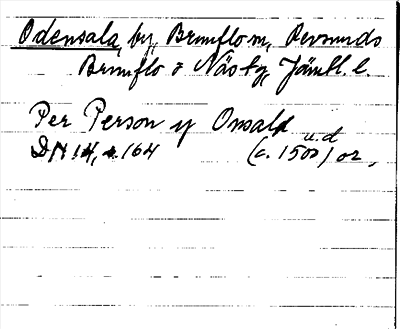 Odensala, by, Brunflo sn, Revsunds
Brunflo o Näs tg, Jämtl. l.
Per Person y Onsald
u.d
DN 14, s. 164 (c. 1500) or,